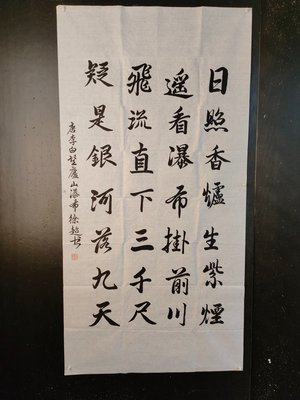 日照香爐生紫煙
遥看瀑布掛前川
飛流直下三千尺
疑是銀河落九天
唐李白望廬山瀑布徐